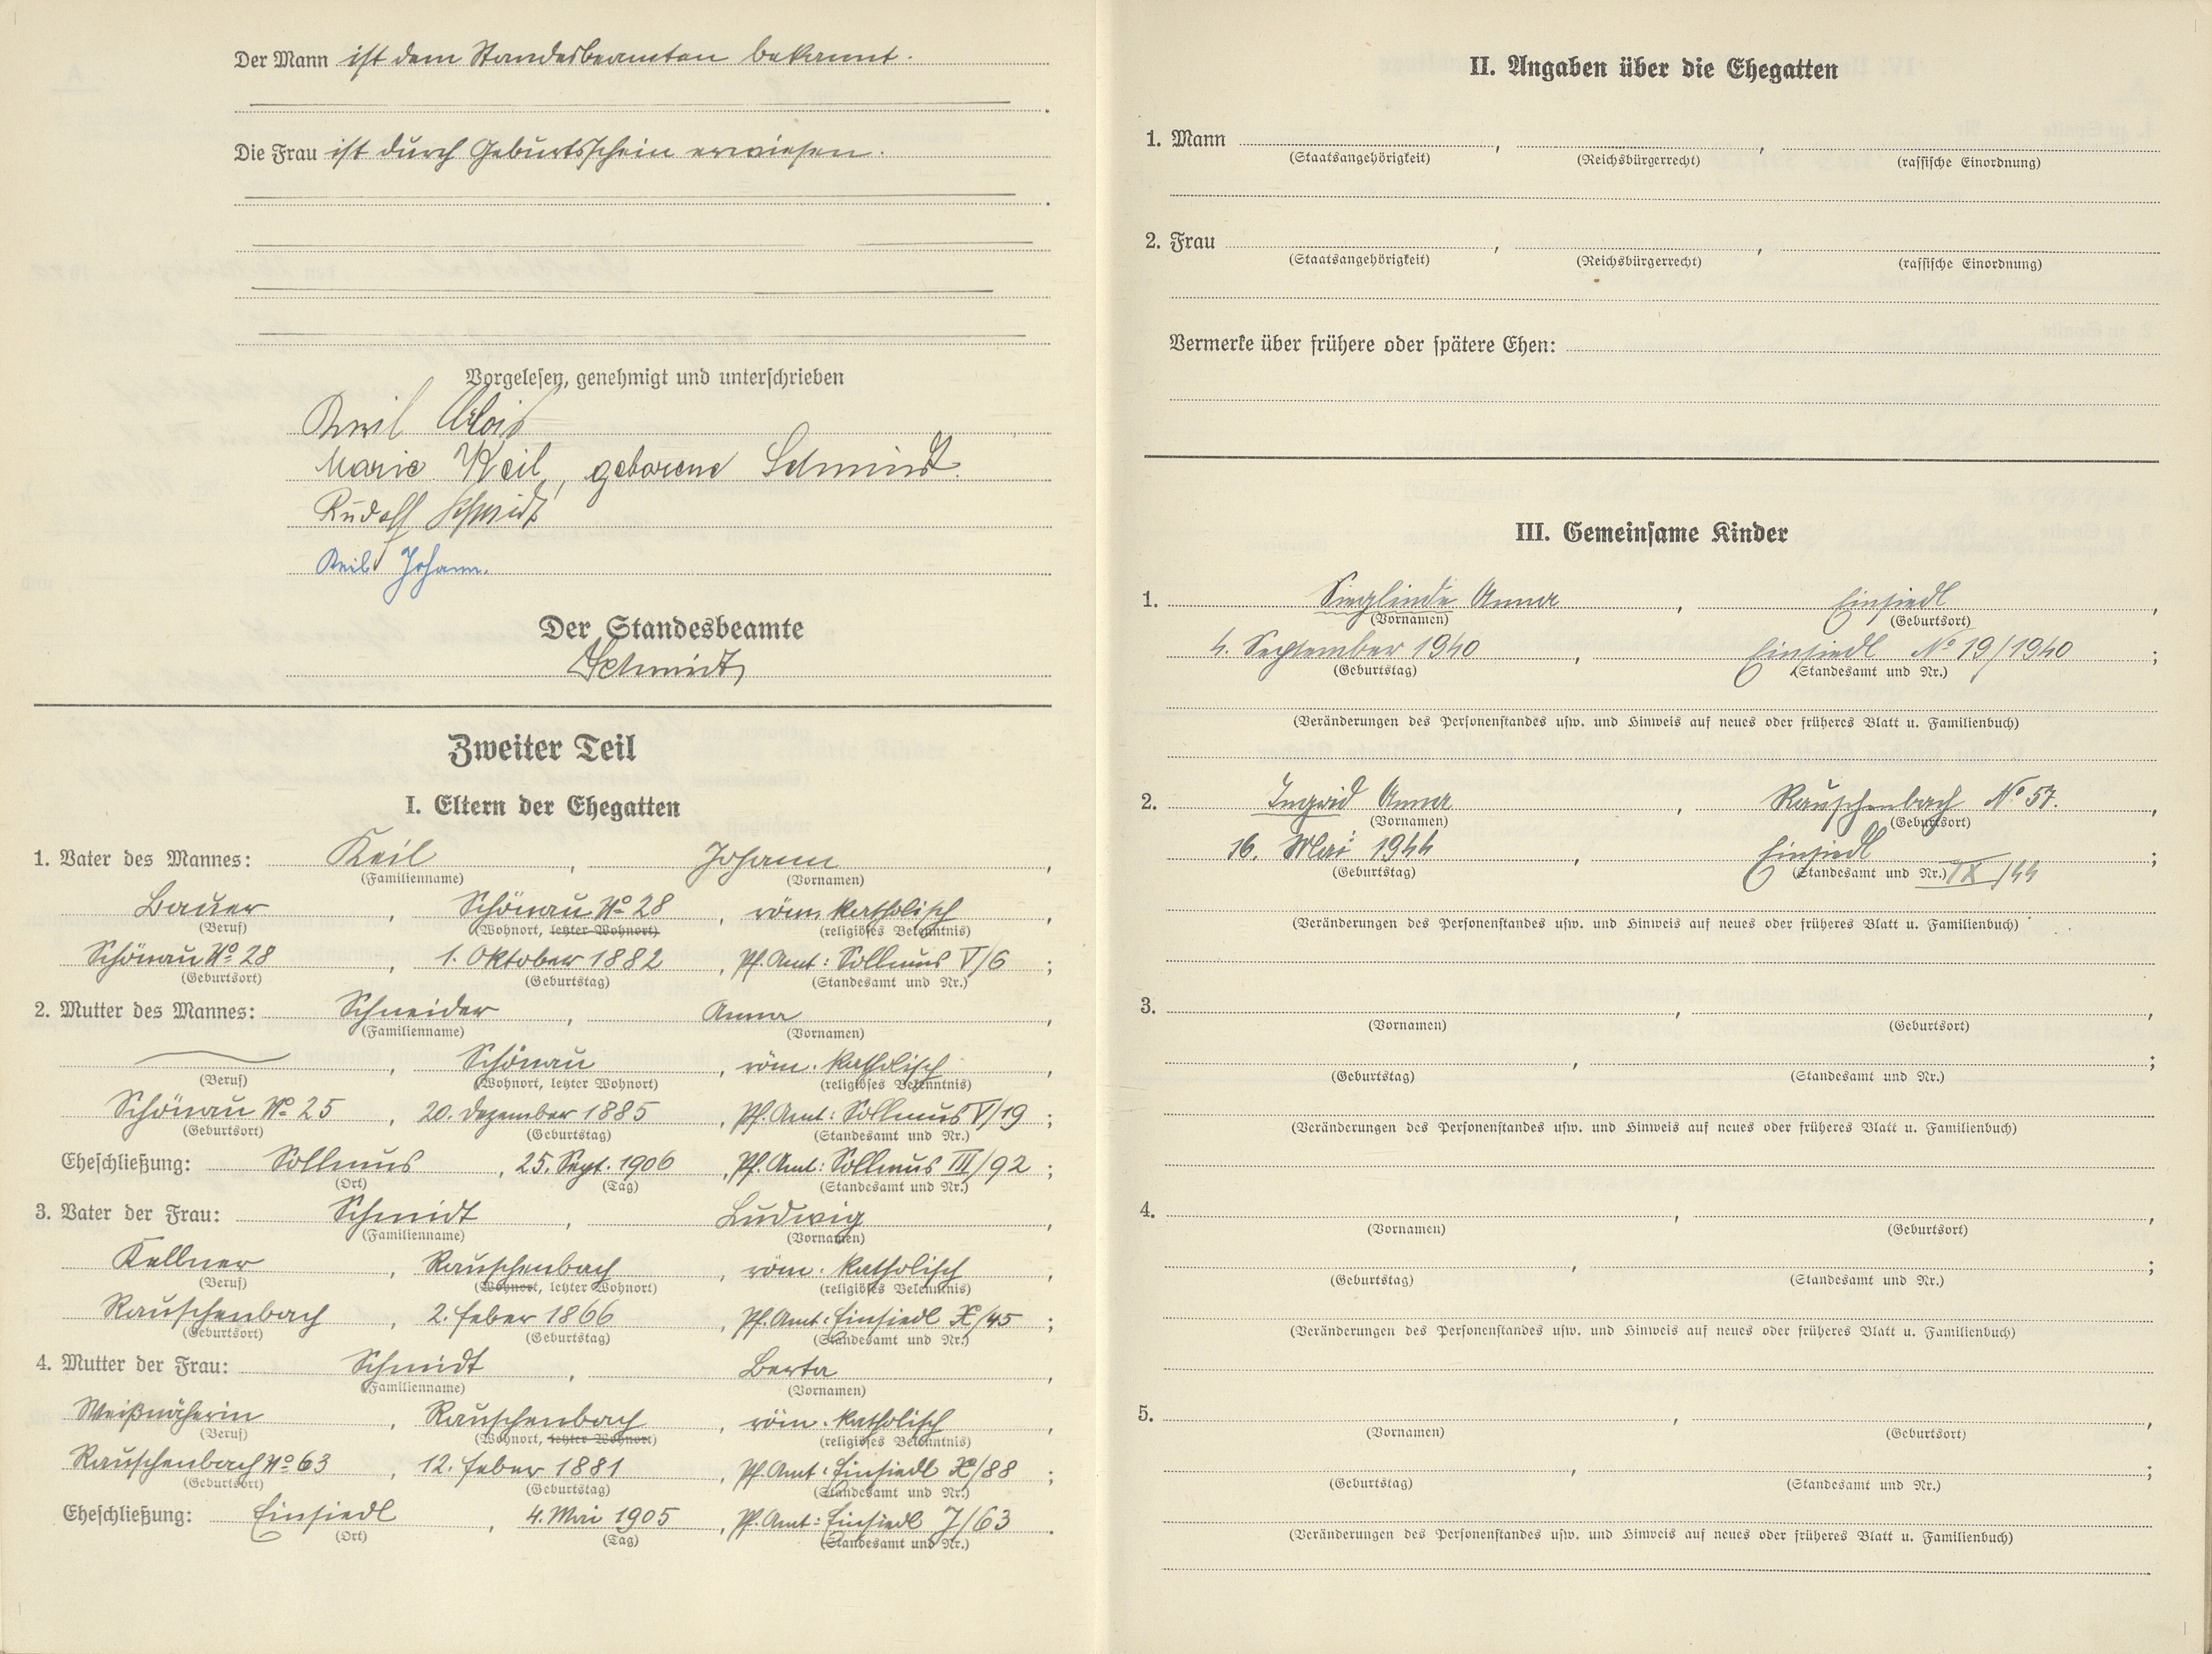 Der Mann ist dem Standesbeamten bekannt.
Die Frau ist durch Geburtsschein erwiesen.
Vorgelesen, genehmigt und unterschrieben
Keil Alois
Marie Keil, geborene Schmidt.
Rudolf Schmidt
Keil Johann.
Der Standesbeamte
Schmidt
Zweiter Teil
I. Eltern der Ehegatten
1. Vater des Mannes: Keil, Johann,
(Familienname) (Vornamen)
Bauer, Schönau No 28, röm. katholisch,
(Beruf) (Wohnort, letzter Wohnort) (religiöses Bekenntnis)
Schönau No 28, 1. Oktober 1882, Pf. Amt: Sollmus V/6;
(Geburtsort) (Geburtstag) (Standesamt und Nr.)
2. Mutter des Mannes: Schneider, Anna,
(Familienname) (Vornamen)
, Schönau, röm. katholisch,
(Beruf) (Wohnort, letzter Wohnort) (religiöses Bekenntnis)
Schönau No 25, 20. Dezember 1885, Pf. Amt: Sollmus V/19;
(Geburtsort) (Geburtstag) (Standesamt und Nr.)
Eheschließung: Sollmus, 25. Sept. 1906, Pf. Amt: Sollmus III/92;
(Ort) (Tag) (Standesamt und Nr.)
3. Vater der Frau: Schmidt, Ludwig,
(Familienname) (Vornamen)
Kellner, Rauschenbach, röm. katholisch,
(Beruf) (Wohnort, letzter Wohnort) (religiöses Bekenntnis)
Rauschenbach, 2. Feber 1866, Pf. Amt: Einsiedl X/45;
(Geburtsort) (Geburtstag) (Standesamt und Nr.)
4. Mutter der Frau: Schmidt, Berta,
(Familienname) (Vornamen)
Weißnäherin, Rauschenbach, röm. katholisch,
(Beruf) (Wohnort, letzter Wohnort) (religiöses Bekenntnis)
Rauschenbach No 63, 12. Feber 1881, Pf. Amt: Einsiedl X/88;
(Geburtsort) (Geburtstag) (Standesamt und Nr.)
Eheschließung: Einsiedl, 4. Mai 1905, Pf. Amt: Einsiedl J/63.
(Ort) (Tag) (Standesamt und Nr.)
II. Angaben über die Ehegatten
1. Mann , ,
(Staatsangehörigkeit) (Reichsbürgerrecht) (rassische Einordnung)
2. Frau , ,
(Staatsangehörigkeit) (Reichsbürgerrecht) (rassische Einordnung)
Vermerke über frühere oder spätere Ehen:
III. Gemeinsame Kinder
1. Sieglinde Anna, Einsiedl,
(Vornamen) (Geburtsort)
4. September 1940, Einsiedl No 19/1940;
(Geburtstag) (Standesamt und Nr.)
(Veränderungen des Personenstandes usw. und Hinweis auf neues oder früheres Blatt u. Familienbuch)
2. Ingrid Anna, Rauschenbach No 57.,
(Vornamen) (Geburtsort)
16. Mai 1944, Einsiedl;
(Geburtstag) (Standesamt und Nr.) IX/44
(Veränderungen des Personenstandes usw. und Hinweis auf neues oder früheres Blatt u. Familienbuch)
3. , ,
(Vornamen) (Geburtsort)
, ;
(Geburtstag) (Standesamt und Nr.)
(Veränderungen des Personenstandes usw. und Hinweis auf neues oder früheres Blatt u. Familienbuch)
4. , ,
(Vornamen) (Geburtsort)
, ;
(Geburtstag) (Standesamt und Nr.)
(Veränderungen des Personenstandes usw. und Hinweis auf neues oder früheres Blatt u. Familienbuch)
5. , ,
(Vornamen) (Geburtsort)
, ;
(Geburtstag) (Standesamt und Nr.)
(Veränderungen des Personenstandes usw. und Hinweis auf neues oder früheres Blatt u. Familienbuch)